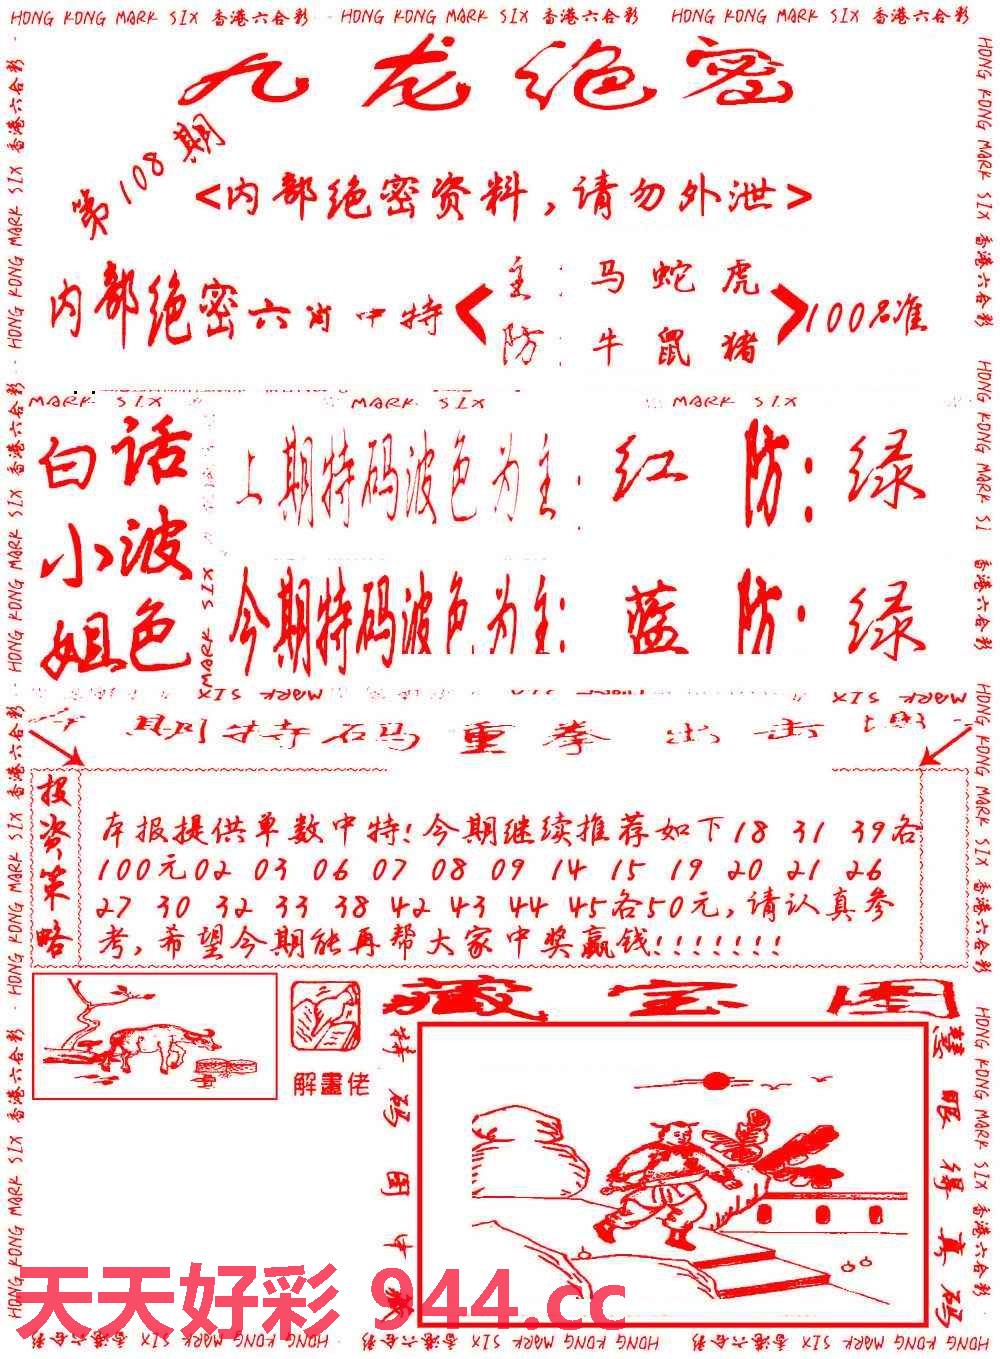 HONG KONG MARK SIX 香港六合彩 HONG KONG MARK SIX 香港六合彩 HONG KONG MARK SIX 香港六合彩
九龙绝密
第108期
<内部绝密资料，请勿外泄>
内部绝密六肖中特
主：马蛇虎
防：牛鼠猪
100%准
MARK SIX MARK SIX MARK SIX
白话
小波
姐色
上期特码波色为主：红 防：绿
今期特码波色为主：蓝 防：绿
期特码重拳出击
投资策略
本报提供单数中特!今期继续推荐如下18 31 39各
100元02 03 06 07 08 09 14 15 19 20 21 26
27 30 32 33 38 42 43 44 45各50元,请认真参
考,希望今期能再帮大家中奖赢钱!!!!!!!
解畫佬
藏宝图
特码图中藏
慧眼得真码
天天好彩 944.cc